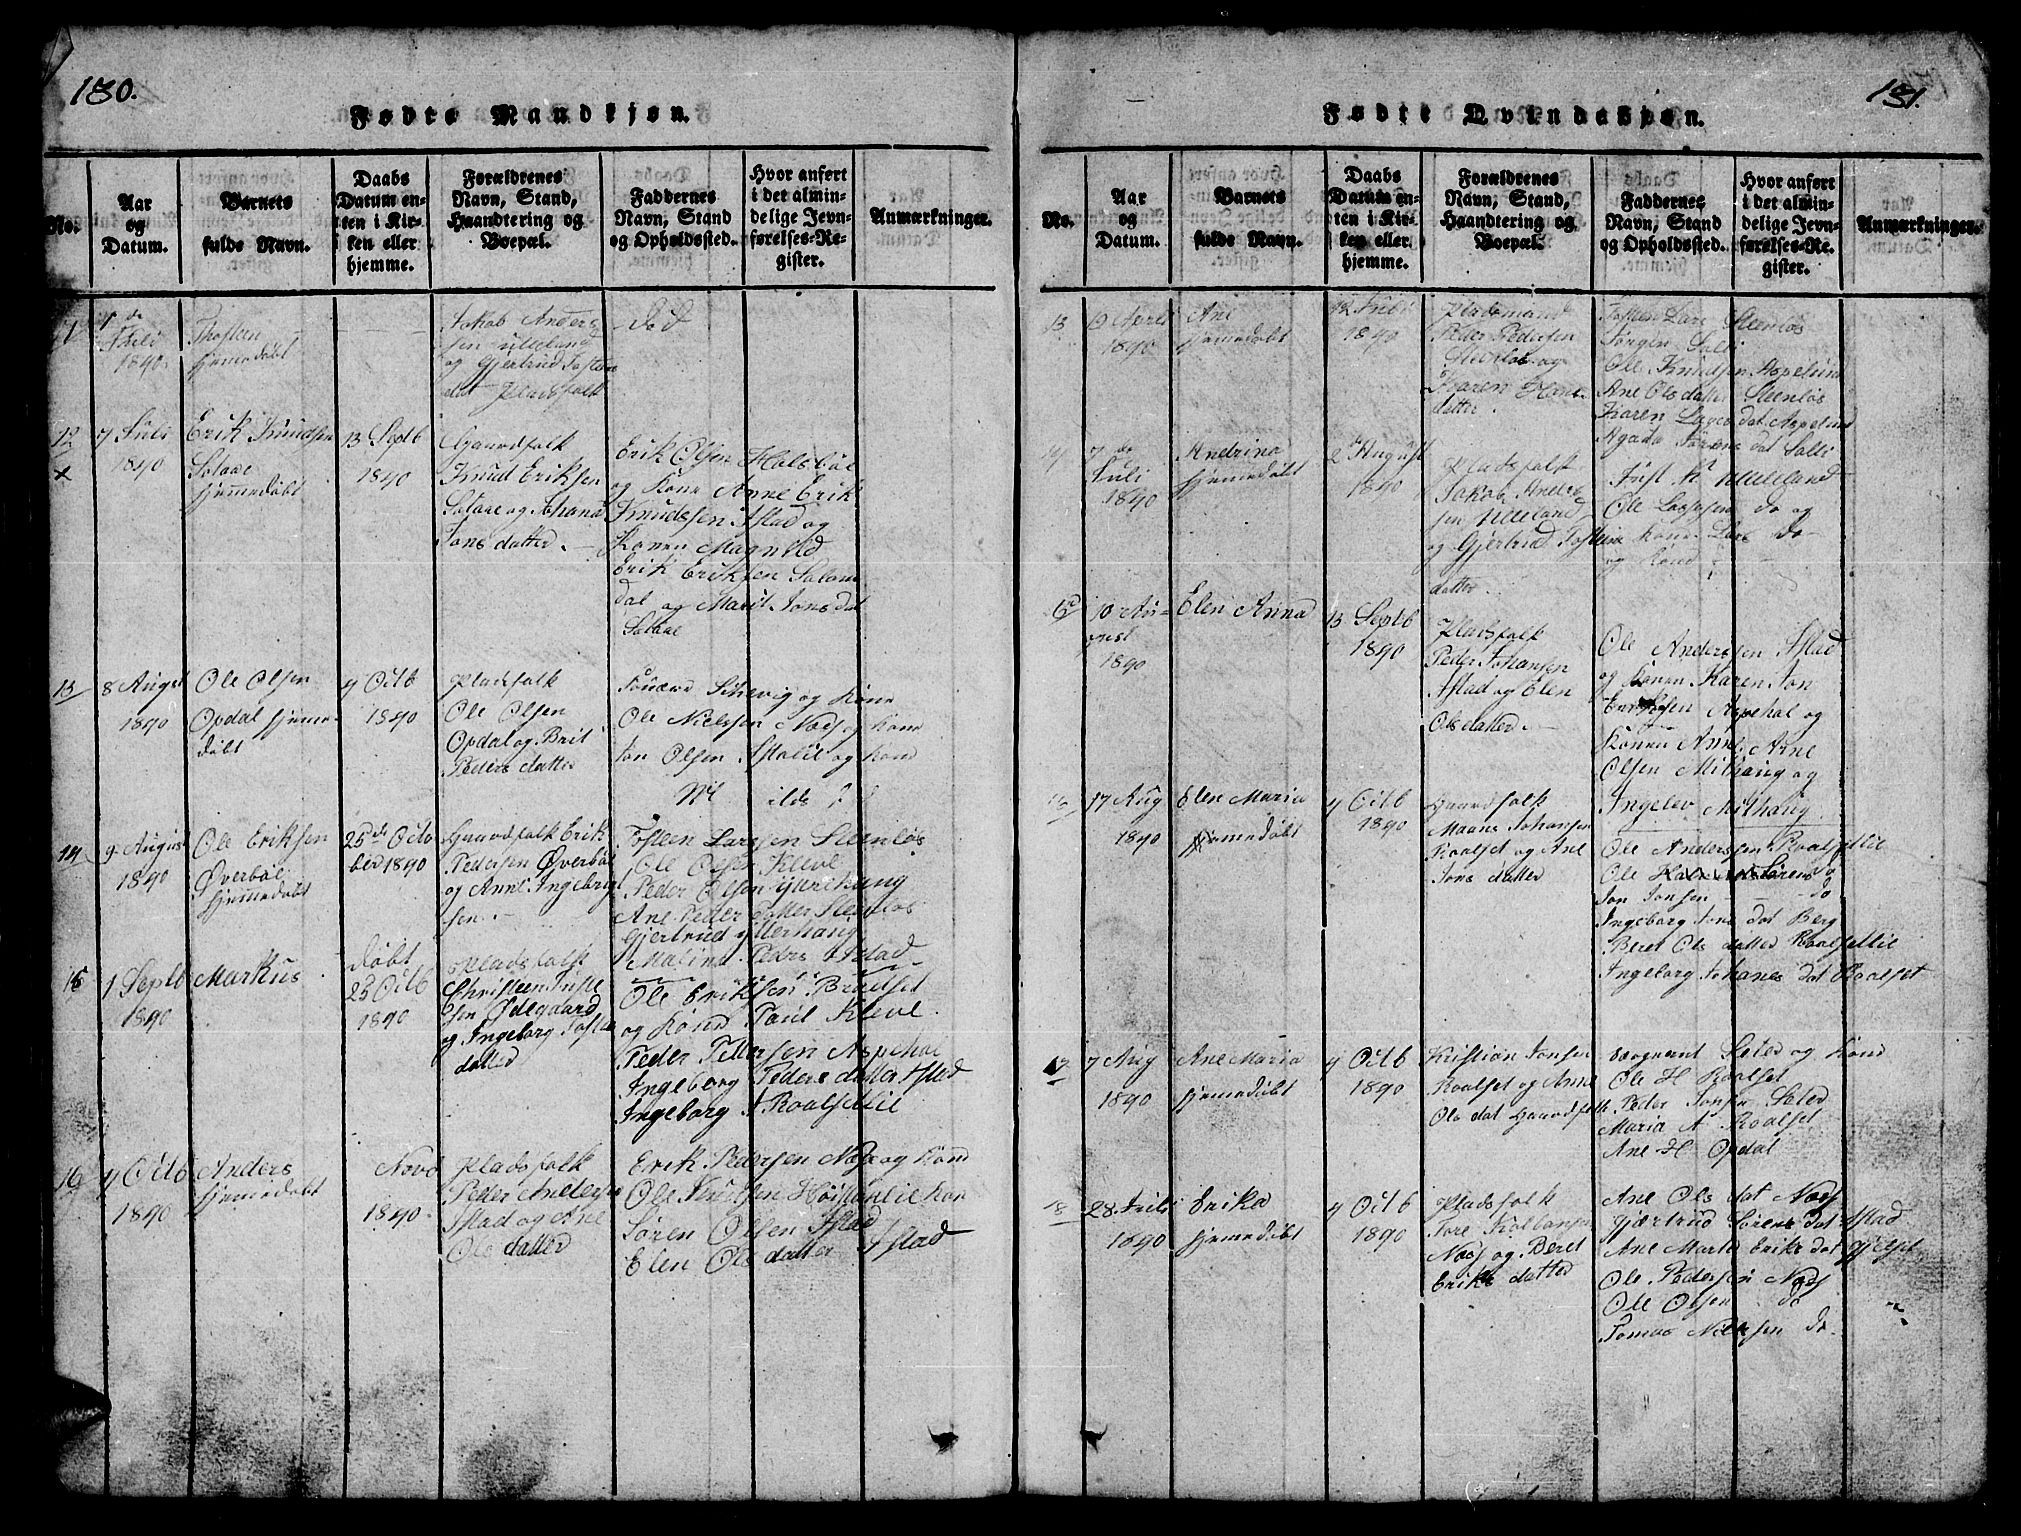 130.
Fødte Mandkjøn.
No.
Aar
og
Datum.
Barnets
fulde Navn.
Daabs
Datum en-
ten i Kir-
ken eller
hjemme.
Forældrenes
Navn, Stand,
Haandtering og
Boepæl.
Faddernes
Navn, Stand
og Opholdssted.
Hvor anført
i det almin-
delige Jevn-
førelses-Re-
gister.
Anmærkninger.
1de
Juli
1890
hjemedøbt
Jakob Anders
sen Ulleland
og Gjertrud Tosten
dat Pladsfolk
død
7 Juli
1890
Erik Knudsen
Solaae
hjemedøbt
13 Septb
1890
Gaardfolk
Knud Eriksen
Solaae og Johana
Jons datter.
Erik Olsen Halsbøe
og Kone Anne Erik
Knudssen Astad og
Konen Magnild
Erik Eriksen Solem
dal og Marit Jons dat
Solaae
13
8 August
1890
Ole Olsen
Opdal hjeme-
døbt
4 Octb
1890
Pladsfolk
Ole Olsen
Opdal og Brit
Peders datter
og Kone
Ole Nielssen Naas og Kone
Jon Olsen Astalie og Kone
14
9 August
1890
Ole Eriksen
Øverbøe
hjemedøbt
25de Octo
ber 1890
Gaardfolk Erik
Pedersen Øverbøe
og Anne Ingebrigt
sen.
Tosteen Larssen Steenløs
Ole Olsen Kleve
Peder Olsen Ytterhaug
Ane Peder datter Steenløs
Gjertrud Ytterhaug
Malina Peders Astad
15
1 Septb
1890
Markus
døbt
25 Octb
1890
Pladsfolk
Christeen
sen Ødegaard
og Ingeborg Tosten
datter
Ole Eriksen Bruaset
og Kone Paul Kleve.
Peder Pettersen Aspehal
Ingeborg Peders datter Astad
Ingeborg A Roalsetlie
16
4 Octb
1890
Anders
hjemedøbt
Novb
1890
Pladsfolk
Peder Anders
Astad og Ane
Ols datter
Erik Pedersen Naas og Kone
Ole Knudsen
Søren Olsen Astad
Elen Ols datter Astad
131.
Fødte Qvindekjøn.
No.
Aar
og
Datum.
Barnets
fulde Navn.
Daabs
Datum en-
ten i Kir-
ken eller
hjemme.
Forældrenes
Navn, Stand,
Haandtering og
Boepæl.
Faddernes
Navn, Stand
og Opholdssted.
Hvor anført
i det almin-
delige Jevn-
førelses-Re-
gister.
Anmærkninger.
13
9 April
1890
Ane
hjemedøbt
12 Juli
1890
Pladsmand
Peder Pedersen
Steenløs og
Karen Hans
datter.
Tosten Lars Steenløs
Jørgen Solli
Ole Knudsen Aspelund
Ane Ols datter Steenløs
Karen Lars dat Aspelund
Agada Jørens dat Solli
14
7de
Juli
1890
Andrina
hjemedøbt
2 August
1890
Pladsfolk
Jakob Anders
sen Ulleland
og Gjertrud Tosten
datter.
Just K Ulleland
Ole Larssen do og
Kone Lars do
og Kone
10 Au-
gust
1890
Elen Anna
13 Septb
1890
Pladsfolk
Peder Johansen
Astad og Elen
Ols datter.
Ole Anderssen Astad
og Konen Karen Jon
Eriksen Aspehal og
Konen Anne Arne
Olsen Mithaug og
Ingelev Mithaug.
17 Aug
1890
Elen Maria
hjemedøbt
4 Octb
1890
Gaardfolk
Maans Johansen
Roalset og Ane
Jons datter
Ole Anderssen Roalsetlie
Jon Jonsen do
Ingeborg Jons dat Berg
Beret Ols datter Roalsetlie
Ingeborg Johanes dat Roalset
17
7 Aug
1890
Ane Maria
hjemedøbt
4 Octb
1890
Kristian Jonsen
Roalset og Anne
Ols dat Gaardfolk
Seter og Kone
Ole H Roalset
Peder Jonsen Seter
Maria A Roalset
Ane H Opdal
18
28 Juli
1890
Erika
hjemedøbt
4 Octb
1890
Pladsfolk
Tore Kolbansen
Naas og Beret
Eriks datter
Ane Ols dat Naas
Gjærtrud Sørens dat Astad
Ane Marta Eriks dat Gjelset
Ole Pedersen Naas
Ole Olsen do
Tomas Nielssen do.